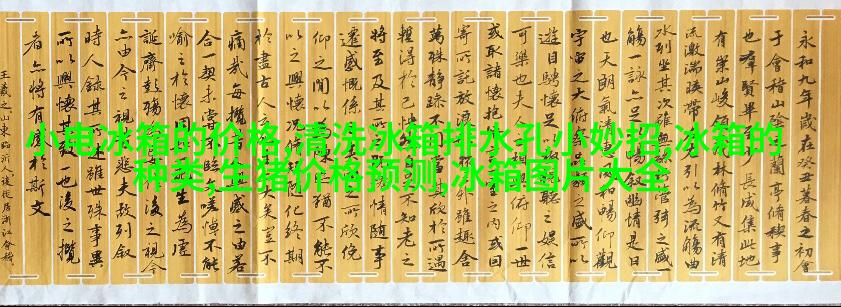 小电冰箱的价格,清洗冰箱排水孔小妙招,冰箱的
种类,生猪价格预测,冰箱图片大全
永和九年歲在癸丑暮春之初會
于會稽山陰蘭亭脩稧事
也群賢畢至少長咸集此地
有崇山峻領茂林脩竹又有清
流激湍暎帶左右引以為流觴曲
水列坐其次雖無絲竹管弦之盛一
觴一詠亦足以暢敘幽情是日
也天朗氣清惠風和暢仰觀
宇宙之大俯察品類之盛所以
遊目騁懷足以極視聽之娛信
可樂也夫人之相與俯仰一世
或取諸懷抱悟言一室之内或因
寄所託放浪形骸之外雖趣舍
萬殊靜躁不同當其欣於所遇
暫得於己快然自足不知老之
將至及其所之既惓情随事
遷感慨係之矣向之所欣俛
仰之間以為陳迹猶不能不
以之興懷況脩短隨化終期
於盡古人云死生亦大矣豈不
痛哉每攬昔人興感之由若
合一契未嘗不臨文嗟悼不能
喻之於懷固知一死生為虛
誕齊彭殤為妄作後之視今
亦由今之視昔悲夫故列叙
時人錄其所述雖世殊事異
所以興懷其致一也後之攬
者亦將有感於斯文
王羲之山東臨沂人後徙居浙江會稽